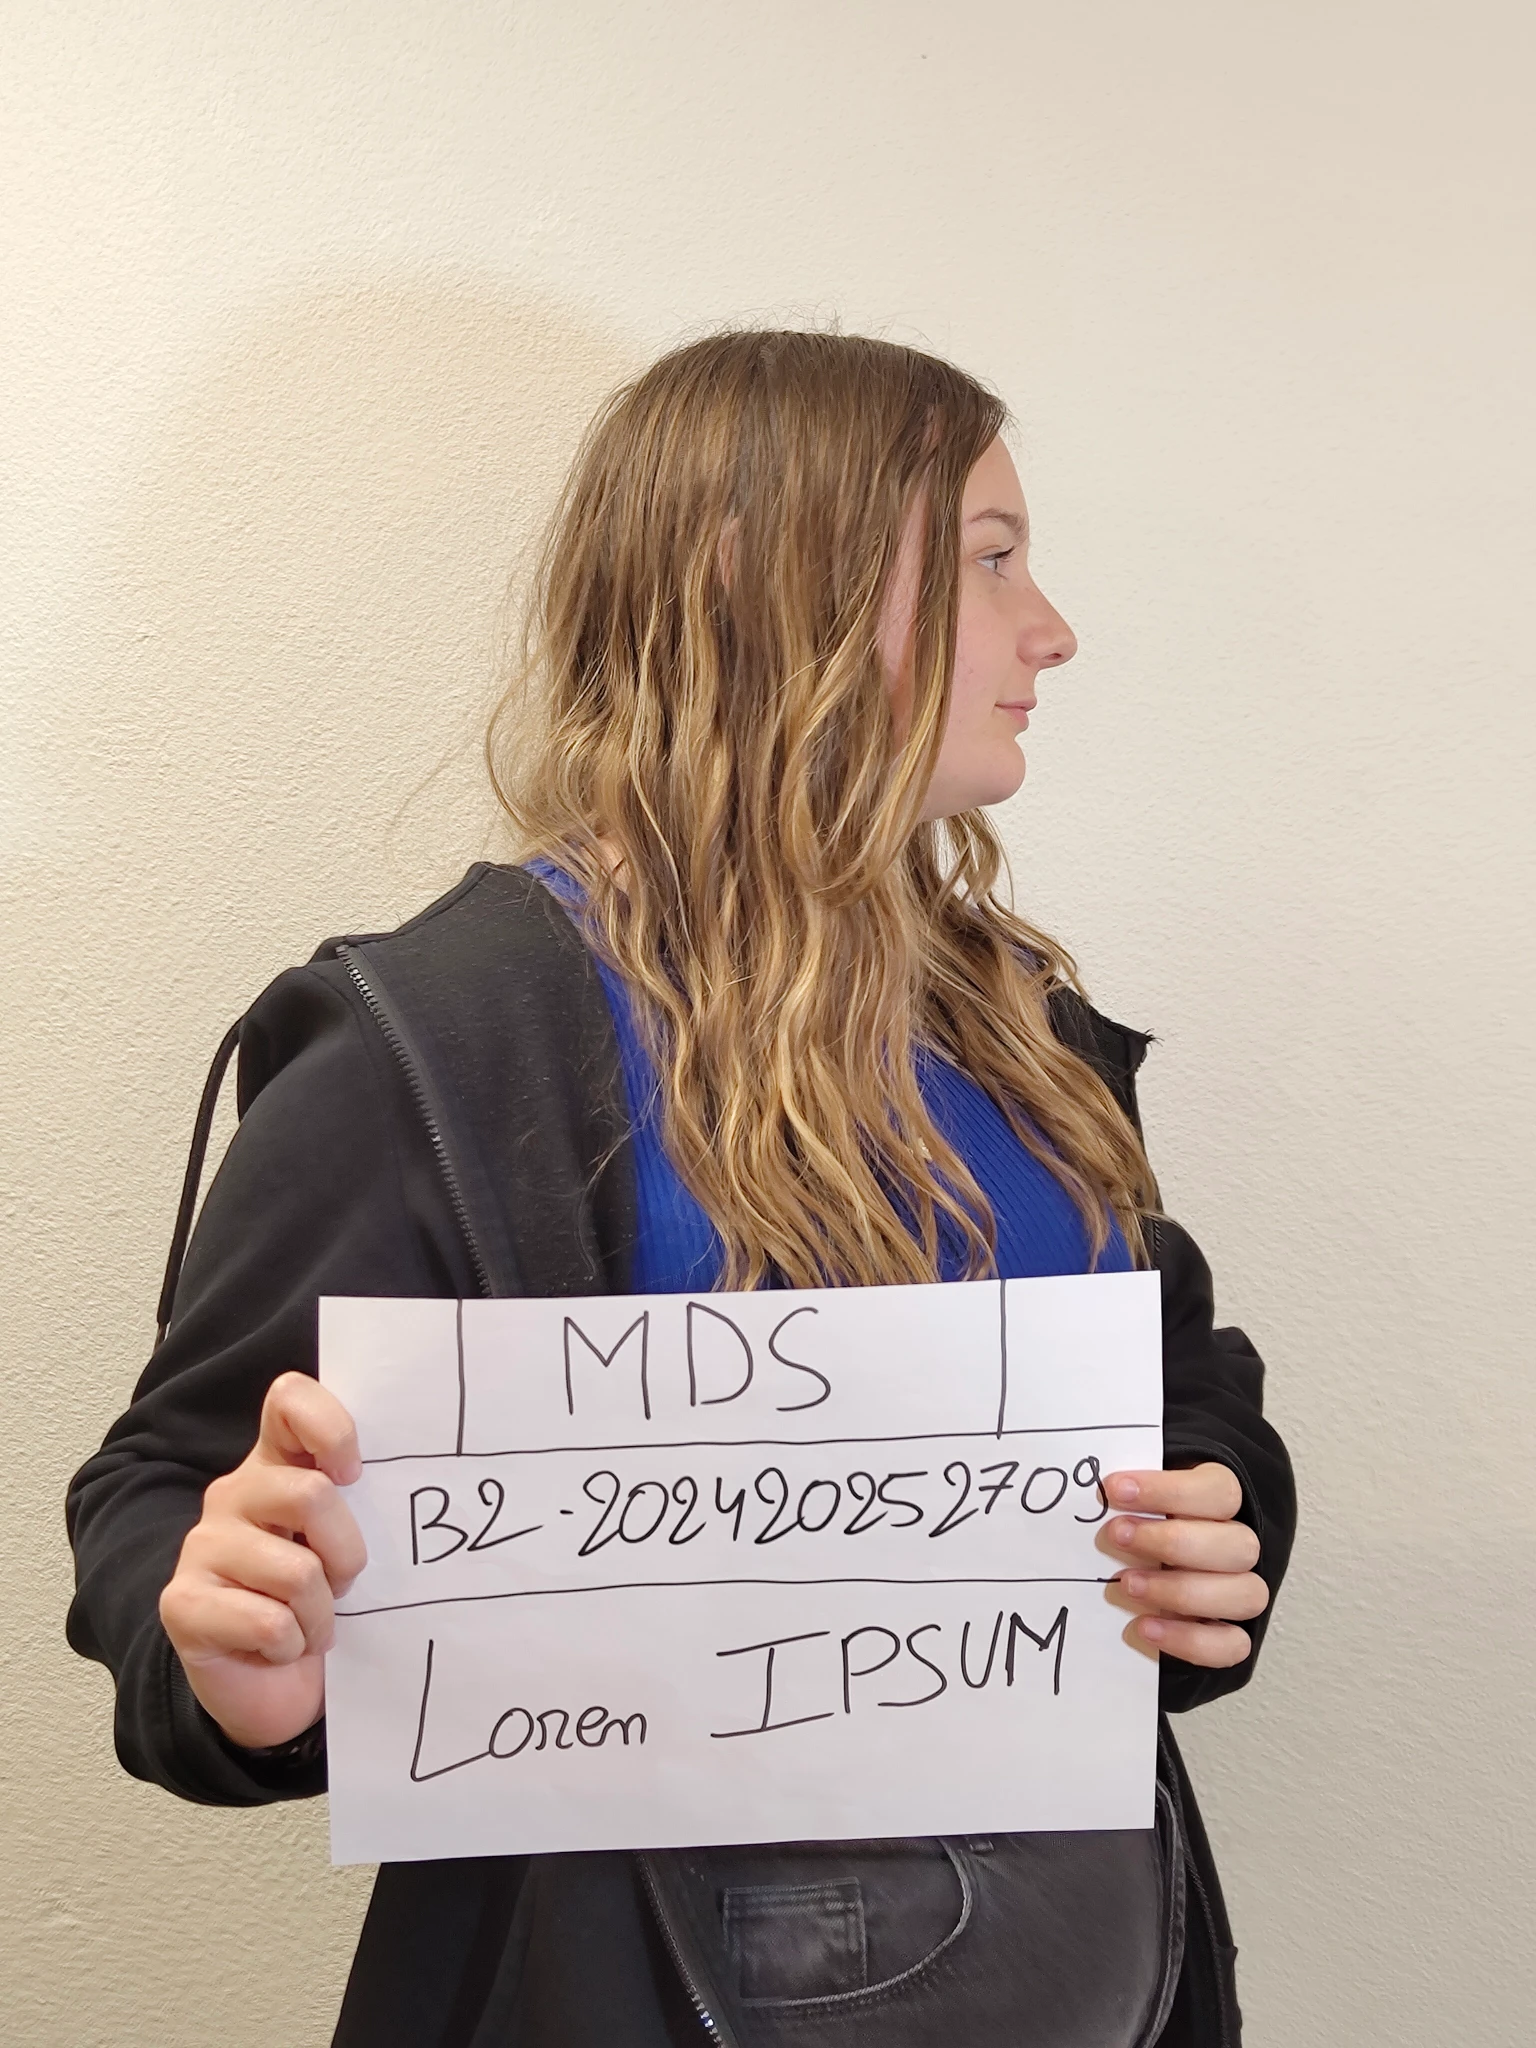 MDS
B2-202420252709
Loren IPSUM